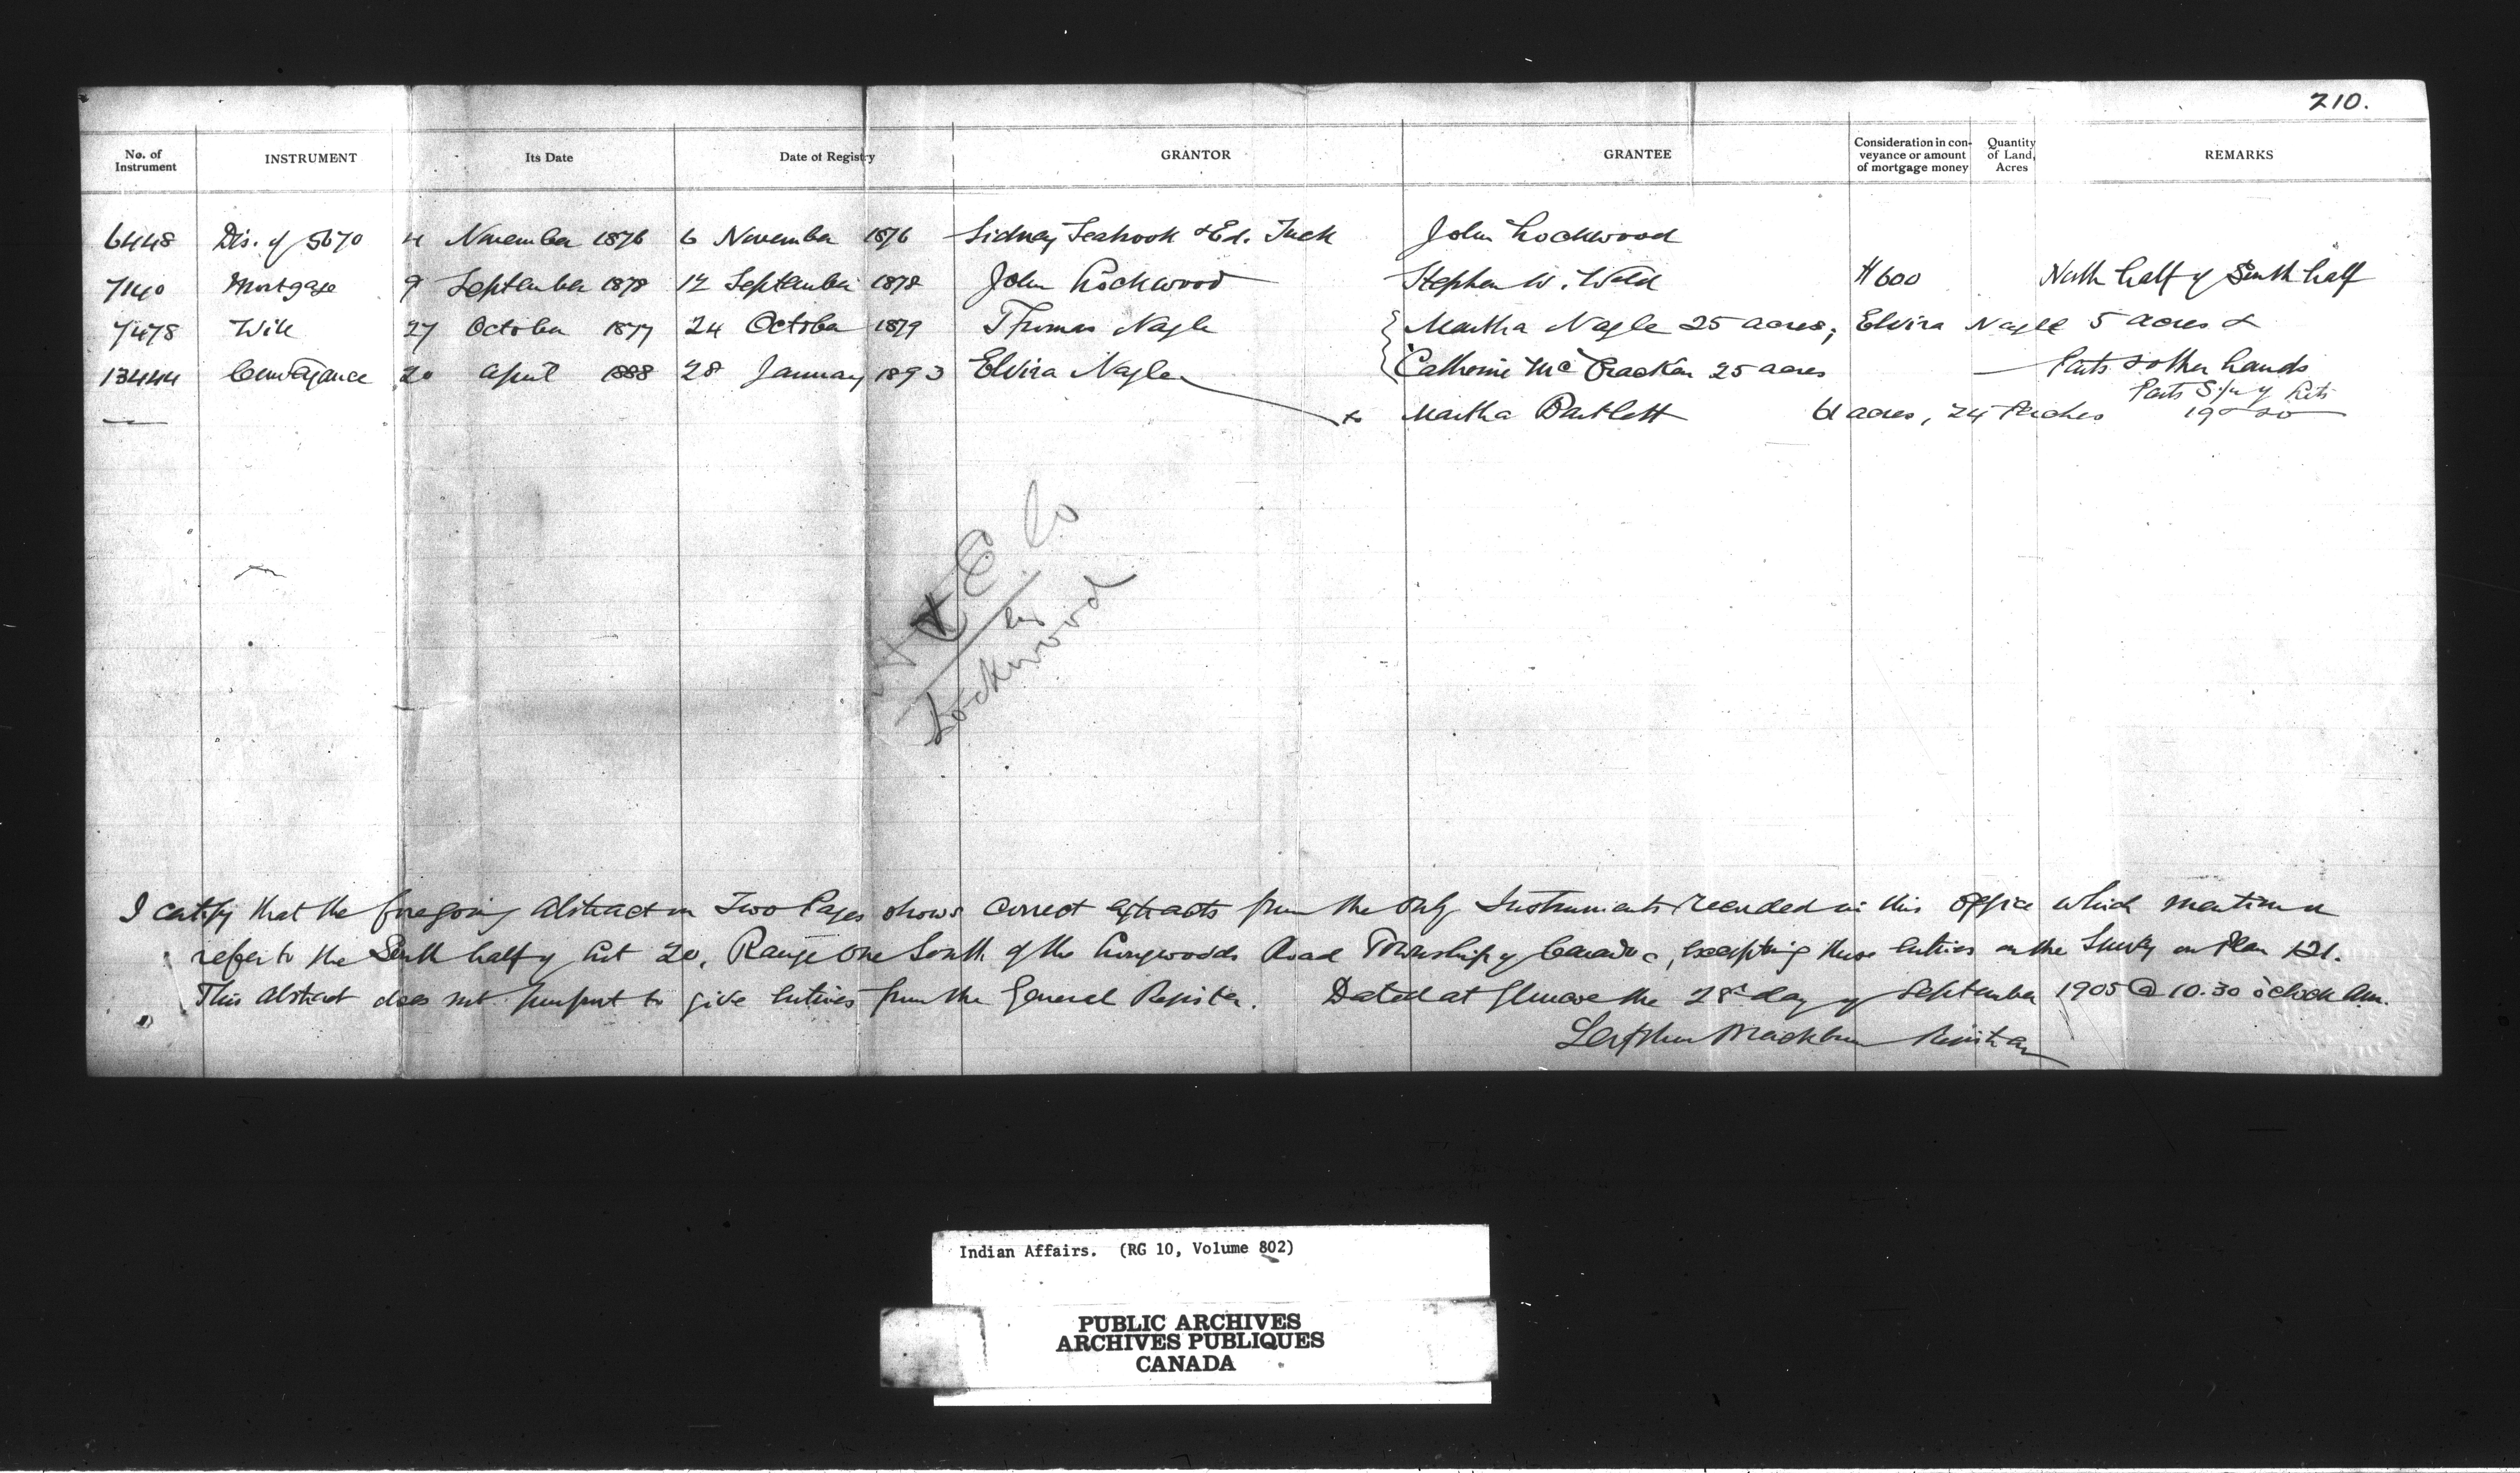 210.
No. of Instrument INSTRUMENT Its Date Date of Registry GRANTOR GRANTEE Consideration in conveyance or amount of mortgage money Quantity of Land, Acres REMARKS
6448 Dis. of 5670 4 November 1876 6 November 1876 Sidney Seabrook & Ed. Tuck John Lockwood
7140 Mortgage 9 September 1878 12 September 1878 John Lockwood Stephen W. Weld $600 North half of South half
7478 Will 27 October 1877 24 October 1879 Thomas Nagle Martha Nagle 25 acres; Elvira Nagle 5 acres &
Catherine McCracken 25 acres
13444 Conveyance 20 April 1888 28 January 1893 Elvira Nagle — Parts & other lands
Martha Bartlett 61 acres, 24 Perches Parts S. 1/2 of Lots 19 & 20
& E. Co
Lockwood
I certify that the foregoing abstract on Two Pages shows correct extracts from the only Instruments recorded in this office which mention or
refer to the South half of Lot 20, Range One South of the Longwoods Road Township of Caradoc, excepting those entries on the Survey on Plan 121.
This abstract does not purport to give entries from the General Register. Dated at Glencoe the 28th day of September 1905 @ 10.30 o'clock am.
Registrar
Indian Affairs. (RG 10, Volume 802)
PUBLIC ARCHIVES
ARCHIVES PUBLIQUES
CANADA